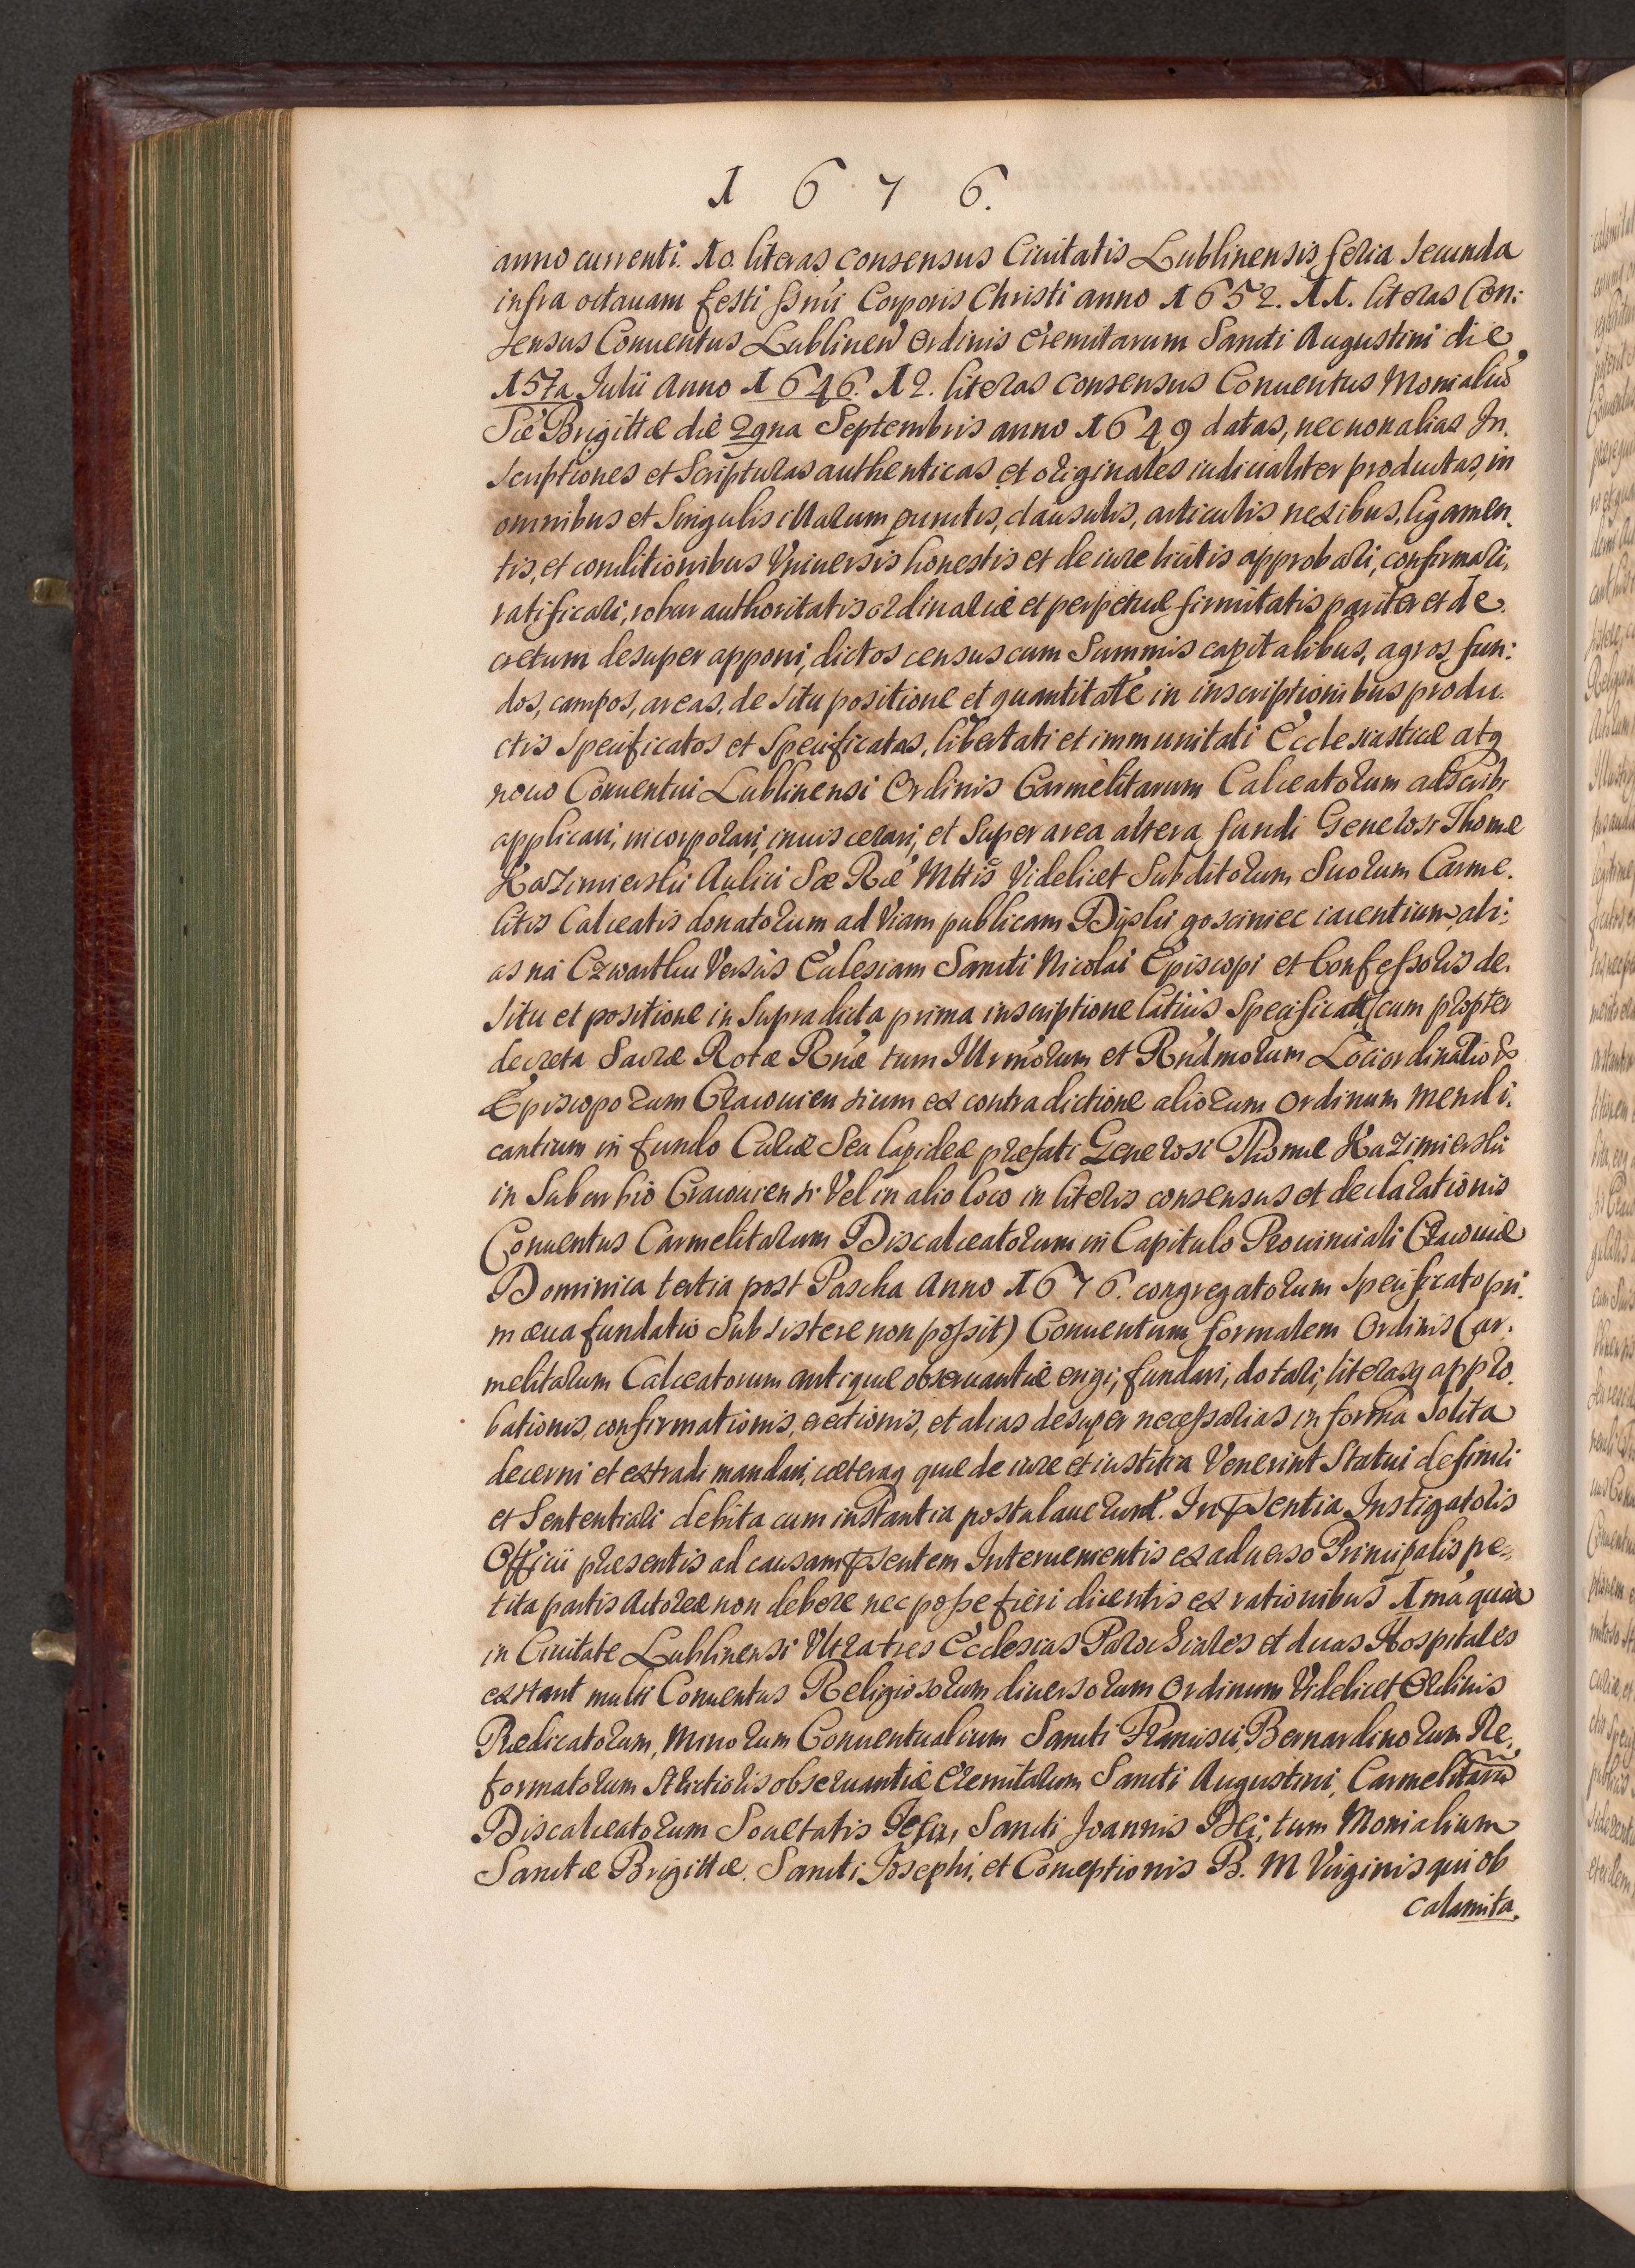 1 6 7 6.
anno currenti. 10. literas consensus Ciuitatis Lublinensis feria secunda
infra octauam festi ssmi Corporis Christi anno 1652. 11. literas Con:
sensus Conuentus Lublinen Ordinis Eremitarum Sancti Augustini die
15ta Julii Anno 1646. 12. literas consensus Conuentus Monialiu
Stae Brigittae die 2gna Septembris anno 1649 datas, nec non alias In.
scriptiones et Scripturas authenticas et originales iudicialiter productas, in
omnibus et Singulis illarum punctis, clausulis, articulis nexibus, ligamen.
tis, et conditionibus Vniuersis honestis et de iure licitis approbari, confirmari,
ratificari, robur authoritatis ordinariae et perpetuae firmitatis pariter et de.
cretum desuper apponi, dictos census cum Summis capitalibus, agros, fun:
dos, campos, areas, de situ positione et quantitate in inscriptionibus produ.
ctis specificatos et Specificatas, libertati et immunitati Ecclesiasticae atq
nouo Conuentui Lublinensi Ordinis Carmelitarum Calceatorum adscribi
applicari, incorporari, inuiscerari, et Super area altera fundi Generosi Thomae
Kazimierski Aulici Sae Rae Mttis Videlicet Subditorum Suorum Carme.
litis Calceatis donatorum ad Viam publicam Dyslii gosciniec iacentium, ali:
as na Czwartku Versus Eclesiam Sancti Nicolai Episcopi et Confessoris de.
situ et positione in Supradicta prima inscriptione latius Specificati (cum propter
decreta Sacrae Rotae Rnae tum Illrmorum et Rndmorum Lociordinariors
Episcoporum Cracouiensium ex contradictione aliorum Ordinum mendi.
cantium in fundo Curiae Seu lapideae praefati Generosi Thomae Kazimierskii
in Suburbio Cracouiensi Vel in alio loco in literis consensus et declarationis
Conuentus Carmelitarum Discalceatorum in Capitulo Prouinciali Cracouiae
Dominica tertia post Pascha Anno 1676. congregatorum specificato pri.
maeua fundatio Subsistere non possit) Conuentum formalem Ordinis Car.
melitarum Calceatorum antiquae obseruantiae erigi, fundari, dotari, literasq appro.
bationis, confirmationis, erectionis, et alias desuper necessarias in forma Solita
decerni et extradi mandari, caeteraq quae de iure et iustitia Venerint Statui definiri
et Sententiari debita cum instantia postulauerunt. In psentia Instigatoris
Officii praesentis ad causam psentem Interuenientis ex aduerso Principalis pe:
tita partis Actoreae non debere nec posse fieri dicentis ex rationibus 1ma quia
in Ciuitate Lublinensi Vltra tres Ecclesias Parochiales et duas Hospitales
exstant multi Conuentus Religiosorum diuersorum Ordinum Videlicet Ordinis
Praedicatorum, Minorum Conuentualium Sancti Francisci, Bernardinorum Re.
formatorum Strictioris obseruantiae Eremitarum Sancti Augustini, Carmelitaru
Discalceatorum Societatis Jesu, Sancti Joannis Dei, tum Monialium
Sanctae Brigittae, Sancti Josephi, et Conceptionis B. M Virginis qui ob
calamita.